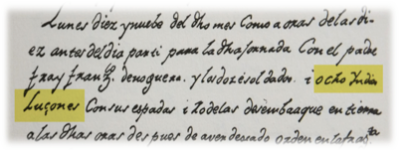 Lunes diez y nuebe del dho mes Como a oras de las di
ez antes del dia parti para la dha jornada Con el padre
fray fran^co. de noguera. y los doze soldados. i ocho Yndios
Luçones Con sus espadas i Rodelas desembarque en tierra
a las dhas oras despues de aver dexado orden en la frag^ta